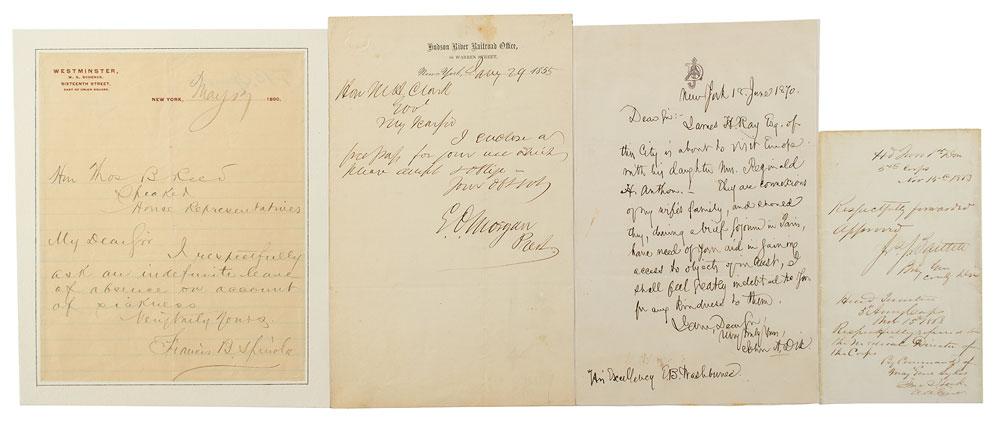 WESTMINSTER,
W. G. SCHENCK,
SIXTEENTH STREET,
EAST OF UNION SQUARE.
NEW YORK, May 1890.
Hon Thos B Reed
Speaker
House Representatives
My Dear Sir
I respectfully
ask an indefinite leave
of absence on account
of sickness
Very truly Yours
Francis B. Spinola
Hudson River Railroad Office,
68 WARREN STREET,
New-York, Jany 29 1855
Hon M. H. Clark
Gov
My Dear Sir
I enclose a
free pass for your use which
please accept &
Your Ob Svt
E. D. Morgan
Prest
New York 18 June 1870.
Dear Sir:-
James H. Ray Esq. of
this City is about to visit Europe
with his daughter Mrs. Reginald
H. Anthon. - They are connexions
of my wife's family, and should
they, during a brief sojourn in Paris,
have need of your aid in gaining
access to objects of interest, I
shall feel greatly indebted to you
for any kindness to them.
I am, Dear Sir,
Very truly Yours,
John A. Dix
His Excellency E. B. Washburne.
Hd Qrs 1st Div
5th Corps
Nov 1863
Respectfully forwarded
Approved
Jos. J. Bartlett
Brig Gen
Comdg Div
5 Army Corps
Nov 1863
Respectfully referred to
the Medical Director of
the Corps
By Command of
Maj Genl Sykes